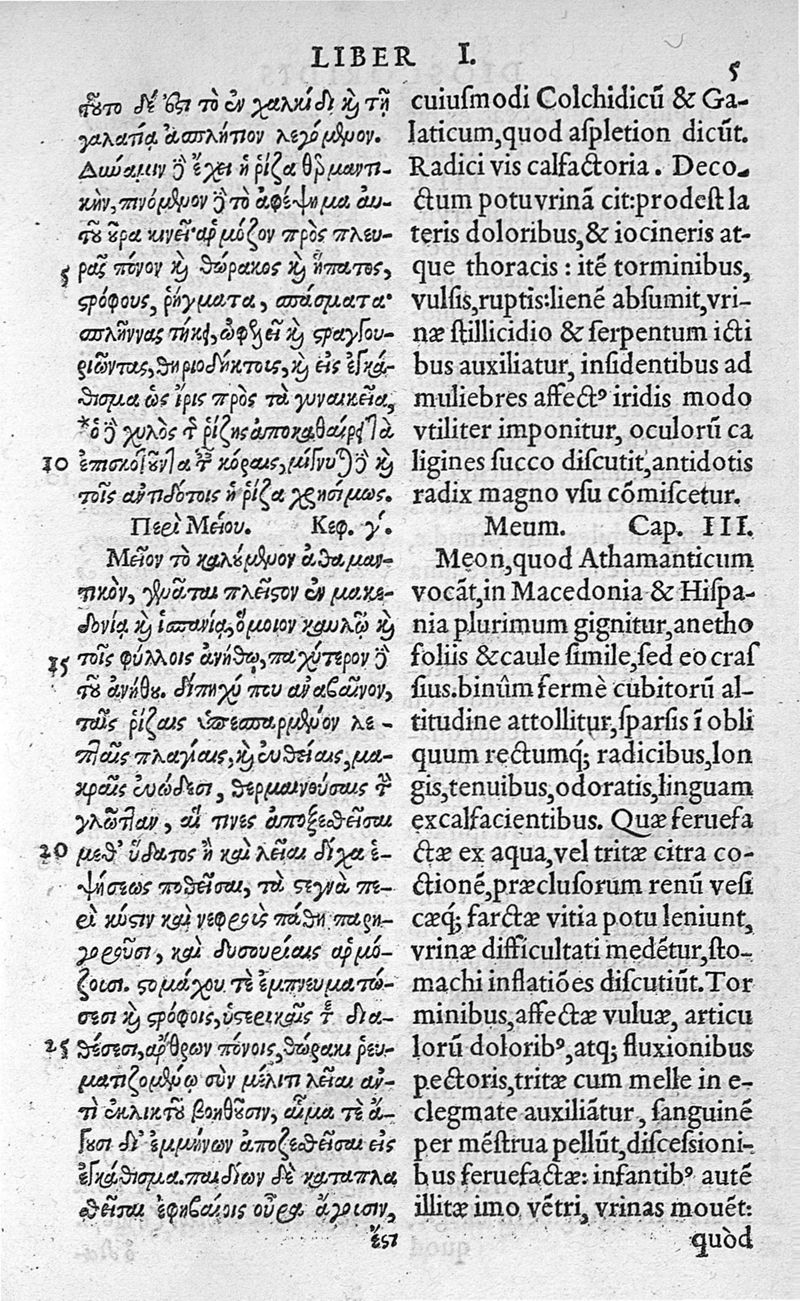 LIBER I. 5
τοῦτο δέ ἐστι τὸ ἐν χαλκίδι καὶ τῇ
γαλατίᾳ ἀσπλήτιον λεγόμενον.
Δύναμιν δὲ ἔχει ἡ ῥίζα θερμαντι-
κὴν, πινόμενον δὲ τὸ ἀφέψημα αυ-
τοῦ οὖρα κινεῖ· ἁρμόζον πρὸς πλευ-
5 ρᾶς πόνον καὶ θώρακος καὶ ἥπατος,
στρόφους, ῥήγματα, σπάσματα·
σπλῆννας τήκει, ὠφελεῖ καὶ στραγγου-
ριῶντας, θηριοδήκτοις, καὶ εἰς ἐγκά-
θισμα ὡς ἶρις πρὸς τὰ γυναικεῖα,
*ὁ δὲ χυλὸς τῆς ῥίζης ἀποκαθαίρει τὰ
10 ἐπισκοτοῦντα ταῖς κόραις, μίγνυται δὲ καὶ
τοῖς ἀντιδότοις ἡ ῥίζα χρησίμως.
Περὶ Μείου. Κεφ. γ΄.
Μεῖον τὸ καλούμενον ἀθαμαν-
τικὸν, γεννᾶται πλεῖστον ἐν μακε-
δονίᾳ καὶ ἱσπανίᾳ, ὅμοιον καυλῷ καὶ
15 τοῖς φύλλοις ἀνήθῳ, παχύτερον δὲ
τοῦ ἀνήθου. δίπηχύ που ἀναβαῖνον,
ταῖς ῥίζαις ὑπεσπαρμένον λε-
πταῖς πλαγίαις, καὶ εὐθείαις, μα-
κραῖς εὐώδεσι, θερμαινούσαις τὴν
γλῶτταν, αἵ τινες ἀποζεθεῖσαι
20 μεθ' ὕδατος ἢ καὶ λεῖαι δίχα ἑ-
ψήσεως ποθεῖσαι, τὰ στεγνὰ πε-
ρὶ κύστιν καὶ νεφροὺς πάθη παρη-
γοροῦσι, καὶ δυσουρίαις ἁρμό-
ζουσι. στομάχου τὲ ἐμπνευματώ-
σεσι καὶ στρόφοις, ὑστερικαῖς τε δια-
25 θέσεσι, ἄρθρων πόνοις, θώρακι ῥευ-
ματιζομένῳ σὺν μέλιτι λεῖαι ἀν-
τὶ ἐκλικτοῦ βοηθοῦσιν, αἷμα τὲ ἄ-
γουσι δι' ἐμμήνων ἀποζεθεῖσαι εἰς
ἐγκάθισμα. παιδίων δὲ καταπλα
θεῖσαι ἐφηβαίοις οὖρα ἄγουσιν,
ἔστι
cuiusmodi Colchidicũ & Ga-
laticum, quod aspletion dicũt.
Radici vis calfactoria. Deco-
ctum potu vrinã cit: prodest la
teris doloribus, & iocineris at-
que thoracis: itẽ torminibus,
vulsis, ruptis: lienẽ absumit, vri-
næ stillicidio & serpentum icti
bus auxiliatur, insidentibus ad
muliebres affectꝰ iridis modo
vtiliter imponitur, oculorũ ca
ligines succo discutit, antidotis
radix magno vsu cõmiscetur.
Meum. Cap. III.
Meon, quod Athamanticum
vocãt, in Macedonia & Hispa-
nia plurimum gignitur, anetho
foliis & caule simile, sed eo cras
sius. binûm fermè cubitorũ al-
titudine attollitur, sparsis ĩ obli
quum rectumq́; radicibus, lon
gis, tenuibus, odoratis, linguam
excalfacientibus. Quæ feruefa
ctæ ex aqua, vel tritæ citra co-
ctionẽ, præclusorum renũ vesi
cæq́; farctæ vitia potu leniunt,
vrinæ difficultati medẽtur, sto-
machi inflatiões discutiũt. Tor
minibus, affectæ vuluæ, articu
lorũ doloribꝰ, atq; fluxionibus
pectoris, tritæ cum melle in e-
clegmate auxiliãtur, sanguinẽ
per mẽstrua pellũt, discessioni-
bus feruefactæ: infantibꝰ autẽ
illitæ imo vẽtri, vrinas mouẽt:
quòd